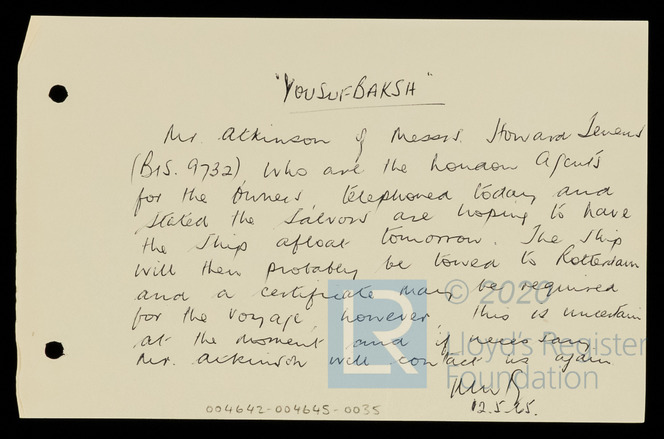 "YOUSUFBAKSH"
Mr. Atkinson of Messrs. Howard Tenens
(BIS. 9732), who are the London Agents
for the Owners, telephoned today and
stated the Salvors are hoping to have
the ship afloat tomorrow. The ship
will then probably be towed to Rotterdam
and a certificate may be required
for the voyage, however, this is uncertain
at the moment and if necessary
Mr. Atkinson will contact us again
12.5.65.
004642-004645-0035
LR
© 2020
Lloyd's Register
Foundation